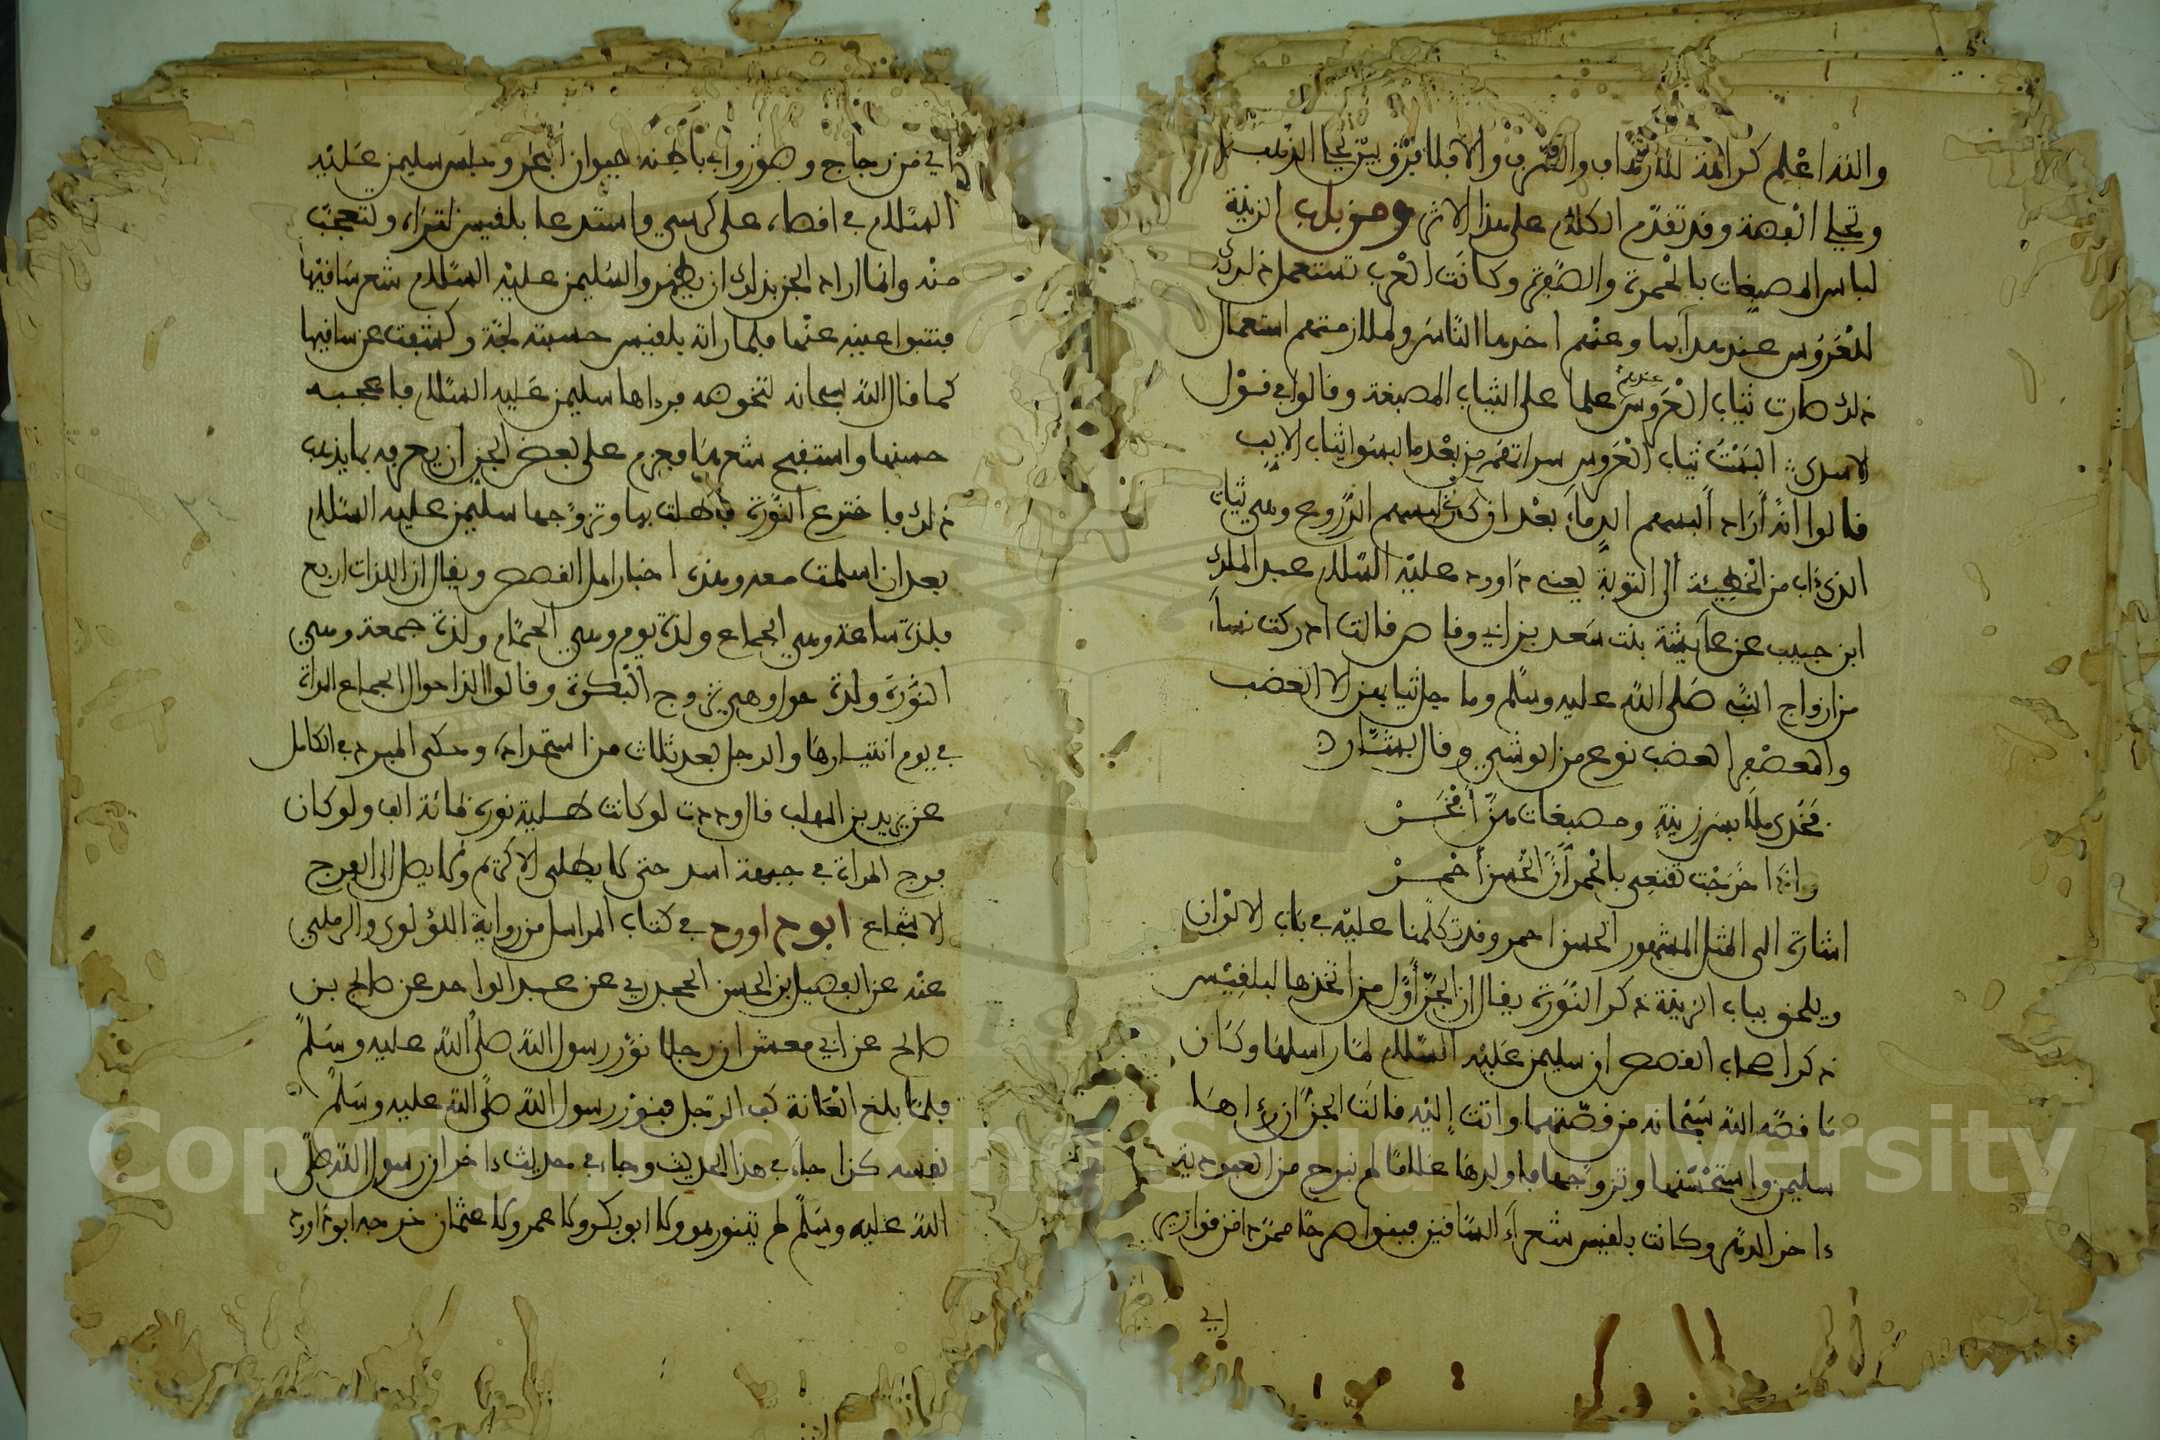 والله اعلم كراهة للذهاب والا فلا فرق بين تحلية الذهب
وتحلية الفضة وقد تقدم الكلام على هذا الاثر ومن باب الزينة
لباس المصبغات بالحمرة والصفرة وكانت العرب تستعمل ذلك
للعروس عند هدايها وعنهم اخذها الناس ولملازمتهم استعمال
ذلك صارت ثياب العروس عندهم علما على الثياب المصبغة وقالوا في قول
الاسدي البست ثياب العروس سراتهم من بعد ما لبسوا ثياب الايب
قالوا انه أراد ألبسهم الدماء بعد ان كان لبسهم الدروع وهي ثياب
الذي تاب من الخطيئة الى التوبة يعني داوود عليه السلام عبد الملك
ابن حبيب عن عايشة بنت سعد بن ابي وقاص قالت ادركت نساء
من ازواج النبي صلى الله عليه وسلم وما جل ثيابهن الا العصب
والمعصفر العصب نوع من الوشي وقال بشار
فخذي ملابس زينة ومصبغات هن أفخر
واذا خرجت تقنعي بالحمر ان الحسن أحمر
اشارة الى المثل المشهور الحسن احمر وقد تكلمنا عليه في باب الالوان
ويلحق بباب الزينة ذكر النورة يقال ان الجن أول من اتخذها لبلقيس
ذكر اصحاب القصص ان سليمن عليه السلام لما راسلها وكان
ما قصه الله سبحانه من قصتهما واتت إليه قالت الجن ان رءاها
سليمن واستحسنها وتزوجها فاولدها غلاما لم نبرح من العبودية
ءاخر الدهر وكانت بلقيس شعراء الساقين فبنوا صرحا ممردا من قوارير
اي
اي من زجاج وصوروا في باطنه حيوان البحر وجلس سليمن عليه
السلام في اقصاه على كرسي واستدعا بلقيس لتراه ولتعجب
منه وانما اراد الجن بذلك ان يظهروا لسليمن عليه السلام شعر ساقيها
فتنبوا عينه عنها فلما راته بلقيس حسبته لجة وكشفت عن ساقيها
كما قال الله سبحانه لتخوضه فرءاها سليمن عليه السلام فاعجبه
حسنها واستقبح شعرها فعزم على بعض الجن ان يعرفه بما يذهب
ذلك فاخترع النورة فاطلت بها وتزوجها سليمن عليه السلام
بعد ان اسلمت معه وهذه اخبار اهل القصص ويقال ان اللذات اربع
فلذة ساعة وهي الجماع ولذة يوم وهي الحمام ولذة جمعة وهي
النورة ولذة حول وهي تزوج البكرة وقالوا الذ احوال الجماع المراة
في يوم انتيارها والرجل بعد ثلاث من استحداده وحكى المبرد في الكامل
عن يزيد بن المهلب قال وددت لو كانت طلية نورة بمائة الف ولو كان
فرج المراة في جبهة اسد حتى لا يطلي الا كريم ولا يصل الى الفرج
الا شجاع ابو داوود في كتاب المراسل من رواية اللؤلوي والرملي
عنه عن الفضيل بن الحسن الجحدري عن عبد الواحد عن صالح بن
صالح عن ابي معشر ان رجلا نور رسول الله صلى الله عليه وسلم
فلما بلغ العانة كف الرجل فنور رسول الله صلى الله عليه وسلم
نفسه كذا جاء في هذا الحديث وجاء في حديث ءاخر ان رسول الله صلى
الله عليه وسلم لم يتنور هو ولا ابو بكر ولا عمر ولا عثمان خرجه ابو داود
Copyright © King Saud University